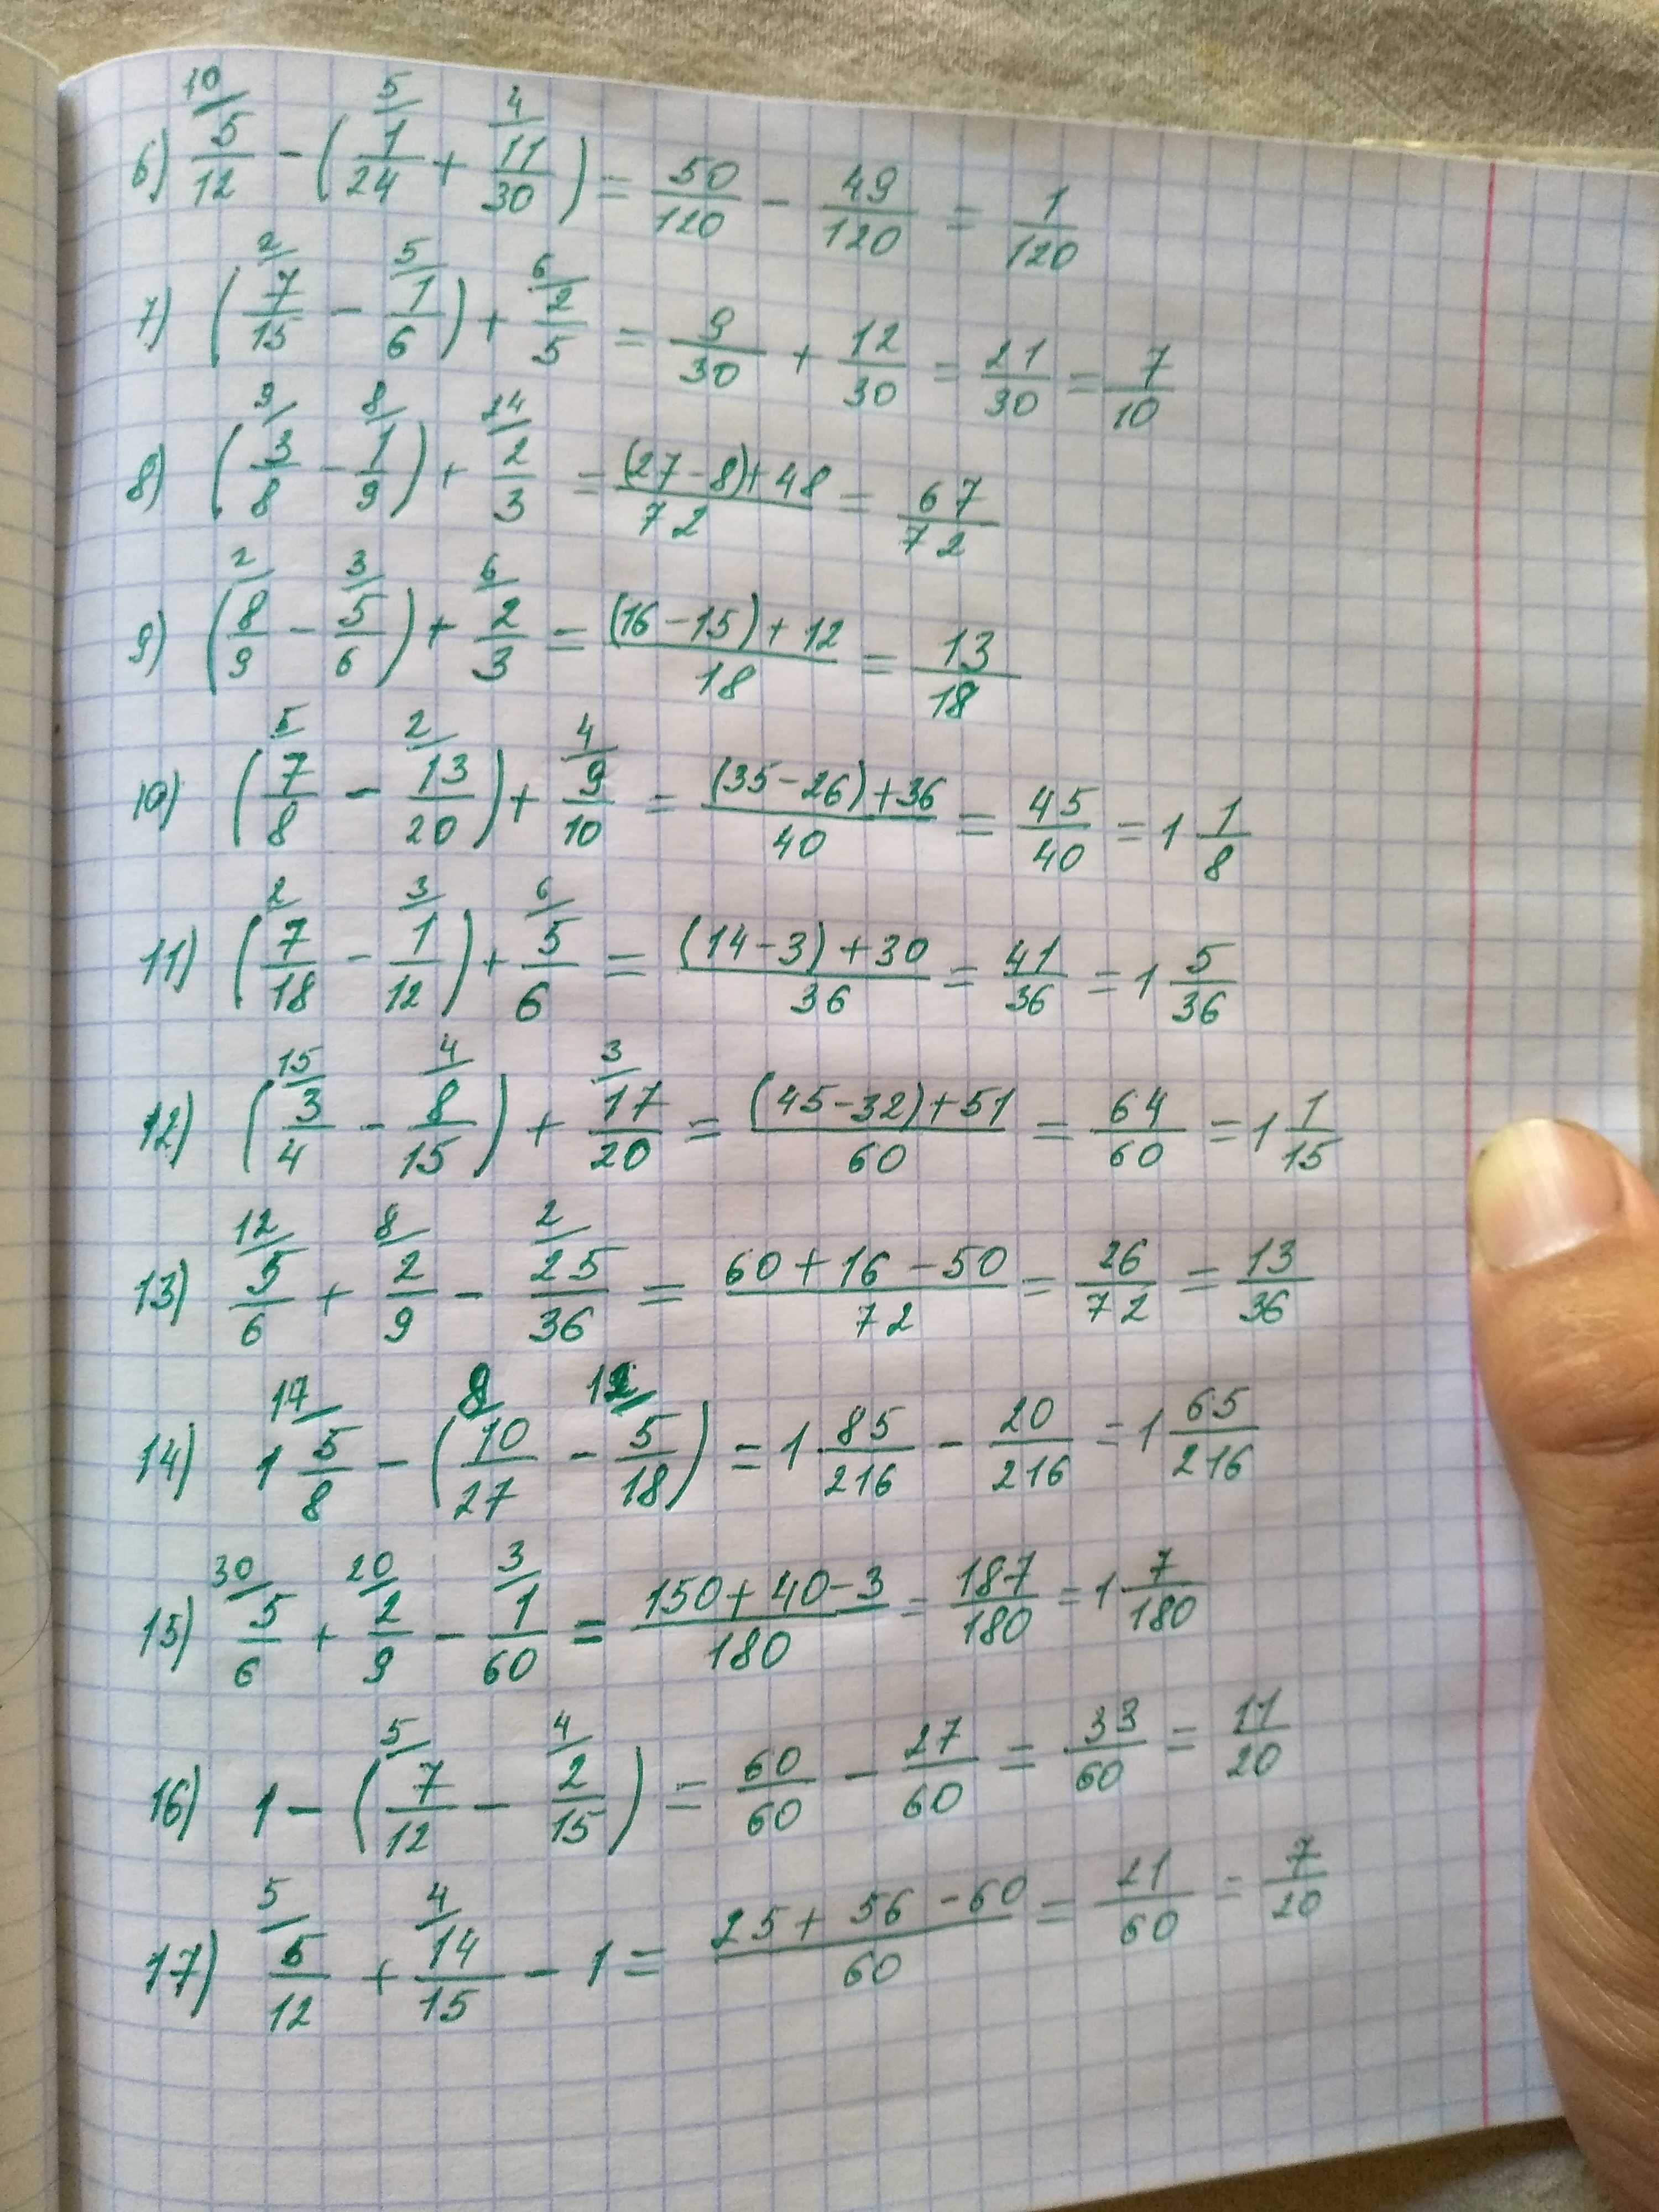 6) 10/ 5/12 - ( 5/ 1/24 + 4/ 11/30 ) = 50/120 - 49/120 = 1/120
7) ( 2/ 7/15 - 5/ 1/6 ) + 6/ 2/5 = 9/30 + 12/30 = 21/30 = 7/10
8) ( 9/ 3/8 - 8/ 1/9 ) + 24/ 2/3 = (27-8)+48/72 = 67/72
9) ( 2/ 8/9 - 3/ 5/6 ) + 6/ 2/3 = (16-15)+12/18 = 13/18
10) ( 5/ 7/8 - 2/ 13/20 ) + 4/ 9/10 = (35-26)+36/40 = 45/40 = 1 1/8
11) ( 2/ 7/18 - 3/ 1/12 ) + 6/ 5/6 = (14-3)+30/36 = 41/36 = 1 5/36
12) ( 15/ 3/4 - 4/ 8/15 ) + 3/ 17/20 = (45-32)+51/60 = 64/60 = 1 1/15
13) 12/ 5/6 + 8/ 2/9 - 2/ 25/36 = 60+16-50/72 = 26/72 = 13/36
14) 17/ 1 5/8 - ( 8/ 10/27 - 12/ 5/18 ) = 1 85/216 - 20/216 = 1 65/216
15) 30/ 5/6 + 20/ 2/9 - 3/ 1/60 = 150+40-3/180 = 187/180 = 1 7/180
16) 1 - ( 5/ 7/12 - 4/ 2/15 ) = 60/60 - 27/60 = 33/60 = 11/20
17) 5/ 5/12 + 4/ 14/15 - 1 = 25+56-60/60 = 21/60 = 7/20